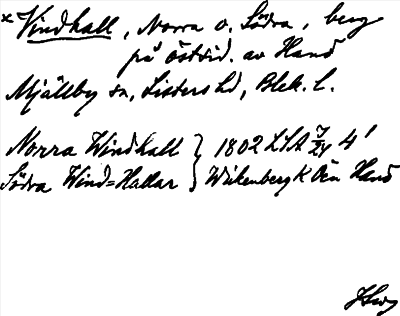 *Vindhall, Norra o. Södra, berg
på östsid. av Hanö
Mjällby sn, Listers hd, Blek. l.
Norra Windhall } 1802 LSA 7/24 4'
Södra Wind=Hallar } Wikenberg K Ön Hanö